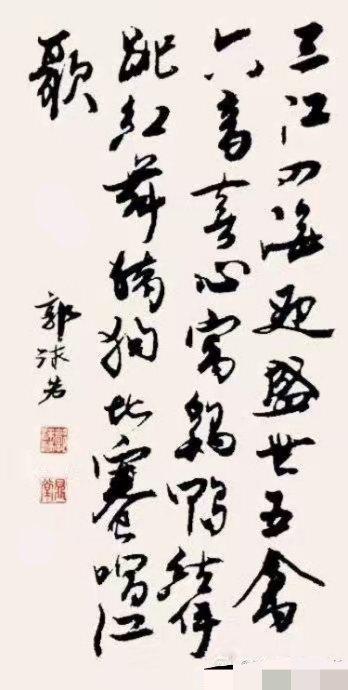 三江四海迎盛世五禽
六畜喜心窝鷄鴨结伴
跳红舞猪狗比赛唱红
歌
郭沫若